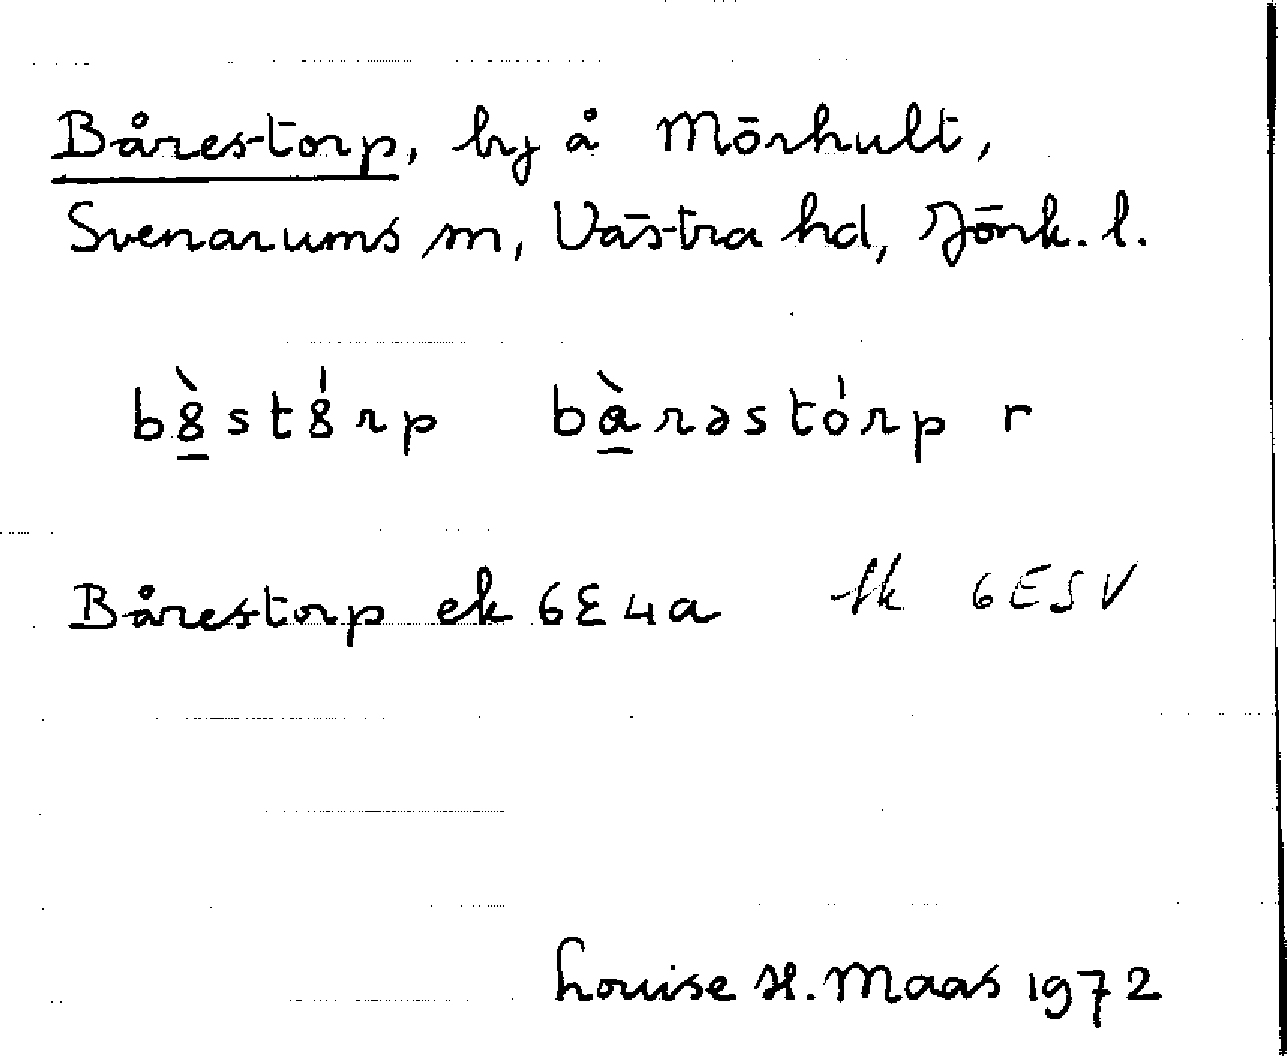 Bårestorp, by å Mörhult,
Svenarums sn, Västra hd, Jönk. l.
b8̠̀st8́rp bà̠rəstórp r
Bårestorp ek 6E4a tk 6E SV
Louise H. Maas 1972